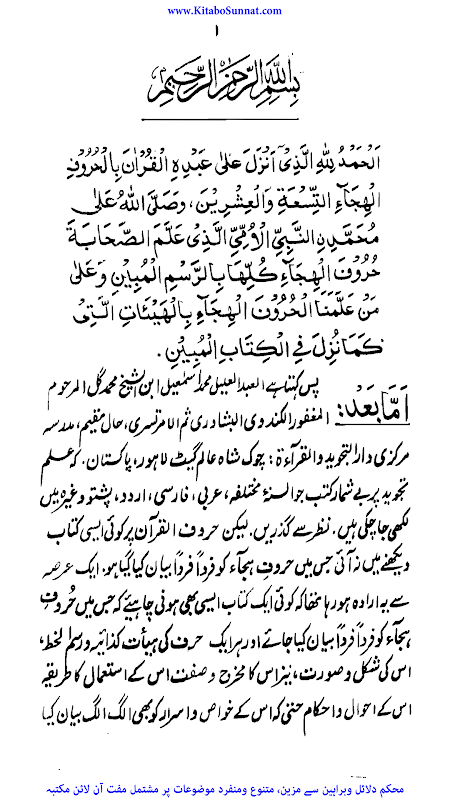 www.KitaboSunnat.com
۱
بِسْمِ اللهِ الرَّحْمٰنِ الرَّحِيْمِ
اَلْحَمْدُ لِلّٰهِ الَّذِیْ اَنْزَلَ عَلٰی عَبْدِهِ الْقُرْاٰنَ بِالْحُرُوْفِ
الْهِجَآءِ التِّسْعَةِ وَالْعِشْرِيْنَ، وَصَلَّی اللهُ عَلٰی
مُحَمَّدِنِ النَّبِیِّ الْاُمِّیِّ الَّذِیْ عَلَّمَ الصَّحَابَةَ
حُرُوْفَ الْهِجَآءِ كُلَّهَا بِالرَّسْمِ الْمُبِيْنِ وَعَلٰی
مَنْ عَلَّمَنَا الْحُرُوْفَ الْهِجَآءِ بِالْهَيْئَاتِ الَّتِیْ
كَمَا نُزِلَ فِی الْكِتَابِ الْمُبِيْنِ.
اَمَّا بَعْدُ: پس کہتا ہے العبد العلیل محمد اسمٰعیل ابن الشیخ محمد گل المرحوم
المغفور الکندوی البشاوری ثم الامرتسری، حال مقیم، مدرسہ
مرکزی دار التجوید والقرآءۃ: چوک شاہ عالم گیٹ لاہور، پاکستان. کہ علم
تجوید پر بے شمار کتب جو السنۂ مختلفہ، عربی، فارسی، اردو، پشتو وغیرہ میں
لکھی جا چکی ہیں. نظر سے گذریں. لیکن حروف القرآن پر کوئی ایسی کتاب
دیکھنے میں نہ آئی جس میں حروفِ ہجآء کو فرداً فرداً بیان کیا گیا ہو. ایک عرصہ
سے یہ ارادہ ہو رہا تھا کہ کوئی ایک کتاب ایسی بھی ہونی چاہیئے کہ جس میں حُروفِ
ہجآء کو فرداً فرداً بیان کیا جائے اور ہر ایک حرف کی ہیأت کذائیہ ورسم الخط،
اس کی شکل و صورت، نیز اس کا مخرج و صفت اس کے استعمال کا طریقہ
اس کے احوال و احکام حتیٰ کہ اس کے خواص و اسرار کو بھی الگ الگ بیان کیا
محکم دلائل وبراہین سے مزین، متنوع ومنفرد موضوعات پر مشتمل مفت آن لائن مکتبہ